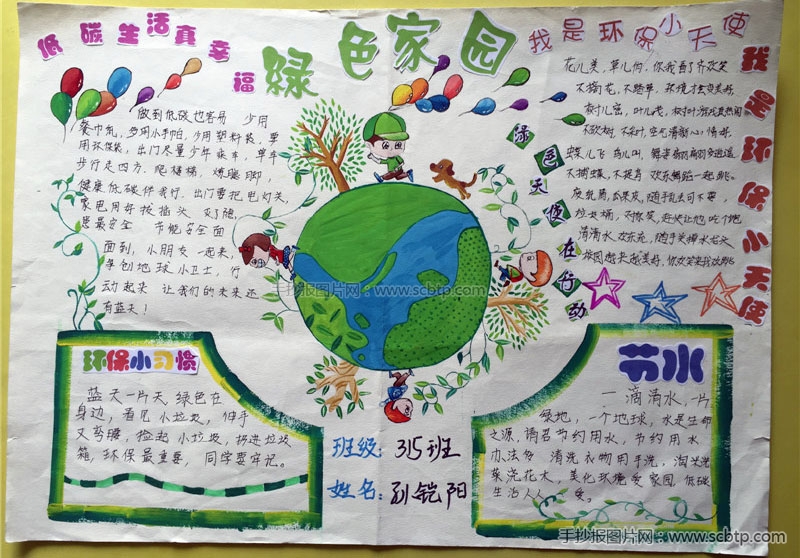 低碳生活真幸福
绿色家园
我是环保小天使
我是环保小天使
做到低碳也容易 少用
餐巾纸，多用小手帕，少用塑料袋，要
用环保袋，出门尽量少车乘车，单车
步行走四方，爬楼梯，炼腿脚，
健康低碳伴我行，出门要把电灯关，
家电用好拔插头 灭了随
患最安全 节能安全面
面到，小朋友一起来，
争创地球小卫士，行
动起来 让我们的未来还
有蓝天！
花儿美，草儿俏，你我看了齐欢笑
不摘花，不踏草，环境才会更美好
树叶儿宽，叶儿茂，
不砍树，不采叶，空气清新心情好
蝶儿飞 鸟儿叫，
不捕蝶，不捉鸟 欢乐舞蹈一起跳
废纸篇 瓜果皮，随手乱丢可不要，
垃圾桶，不懂笑，赶快让他吃个饱
清清水 欢乐流，随手关掉水龙头
绿色天使在行动
手抄报图片网：www.scbtp.com
环保小习惯
蓝天一片天 绿色在
身边，看见小垃圾，伸手
又弯腰，捡起小垃圾，扔进垃圾
箱，环保最重要，同学要牢记。
节水
一滴清水，一片
绿地，一个地球，水是生命
之源，请君节约用水，节约用水
办法多 清洗衣物用手洗，淘米洗
菜浇花大，美化环境爱家园，低碳
生活人人爱。
班级：315班
姓名：孙铠阳
手抄报图片网：www.scbtp.com